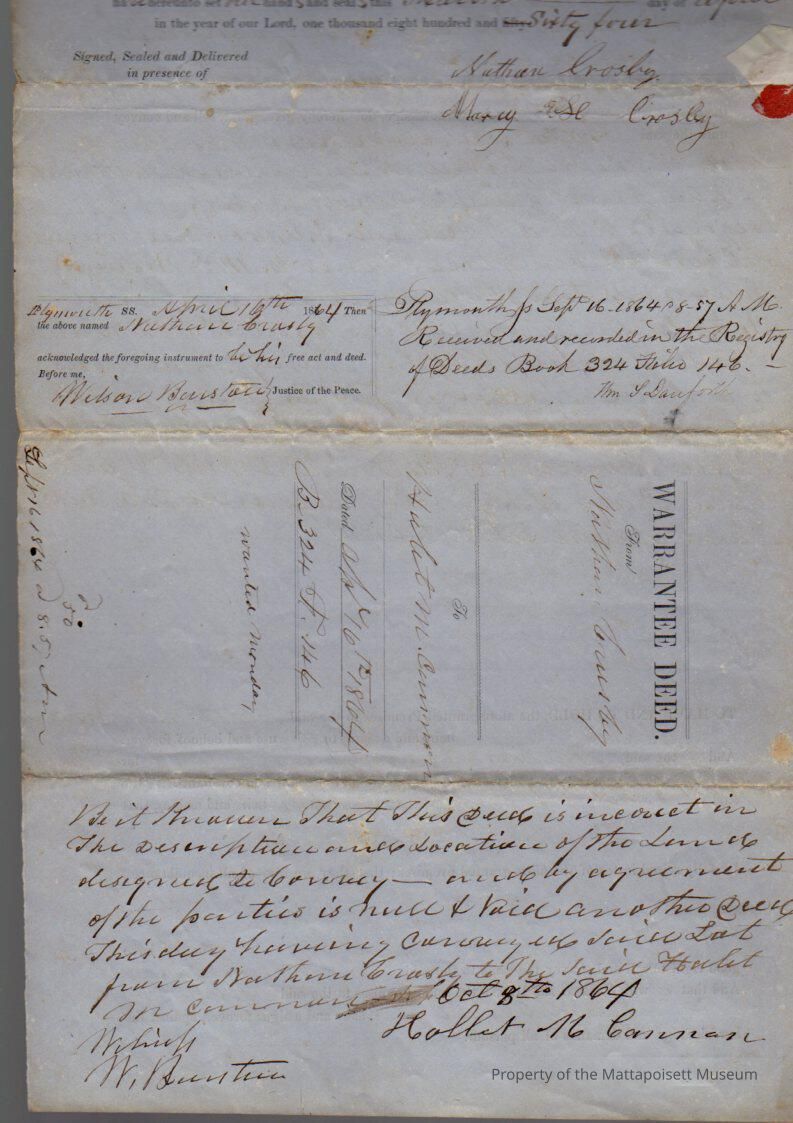 hereunto set hand s and seal s this day of April
in the year of our Lord, one thousand eight hundred and fifty Sixty four
Signed, Sealed and Delivered
in presence of
Nathan Crosby
Marcy Crosby
Plymouth SS. April 16th 1864 Then
the above named Nathan Crosby
acknowledged the foregoing instrument to be his free act and deed.
Before me,
Wilson Barstow Justice of the Peace.
Plymouth Ss Sept 16-1864 8-57 A M.
Received and recorded in the Registry
of Deeds Book 324 Folio 146.
Wm S Danforth
WARRANTEE DEED.
From
Nathan Crosby
To
Halet M Cannon
Dated Apl 16th 1864
B. 324 F. 146
wanted Monday
50
Sept 16 1864 8.57 Am
Be it Known That This Deed is incorect in
The Description and Location of the Land
designed to Convey — and by agreement
of the parties is null & Void another Deed
This day having Conveyed Said Lot
from Nathan Crosby to The Said Halet
M Cannon Oct 8th 1864
Hallet M Cannon
Witness
W. Barstow
Property of the Mattapoisett Museum